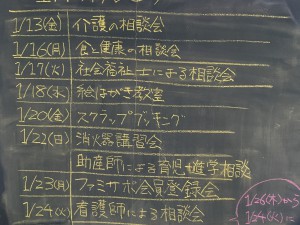 1/13(金) 介護の相談会
1/16(月) 食と健康の相談会
1/17(火) 社会福祉士による相談会
1/18(水) 絵はがき教室
1/20(金) スクラップブッキング
1/22(日) 消火器講習会
助産師による育児・進学相談
1/23(月) ファミサポ会員登録会
1/24(火) 看護師による相談会
1/26(木)から
1/24(火)に